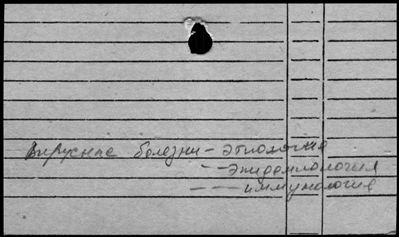 Вирусные болезни – этиология
– – эпидемиология
– – – иммунология